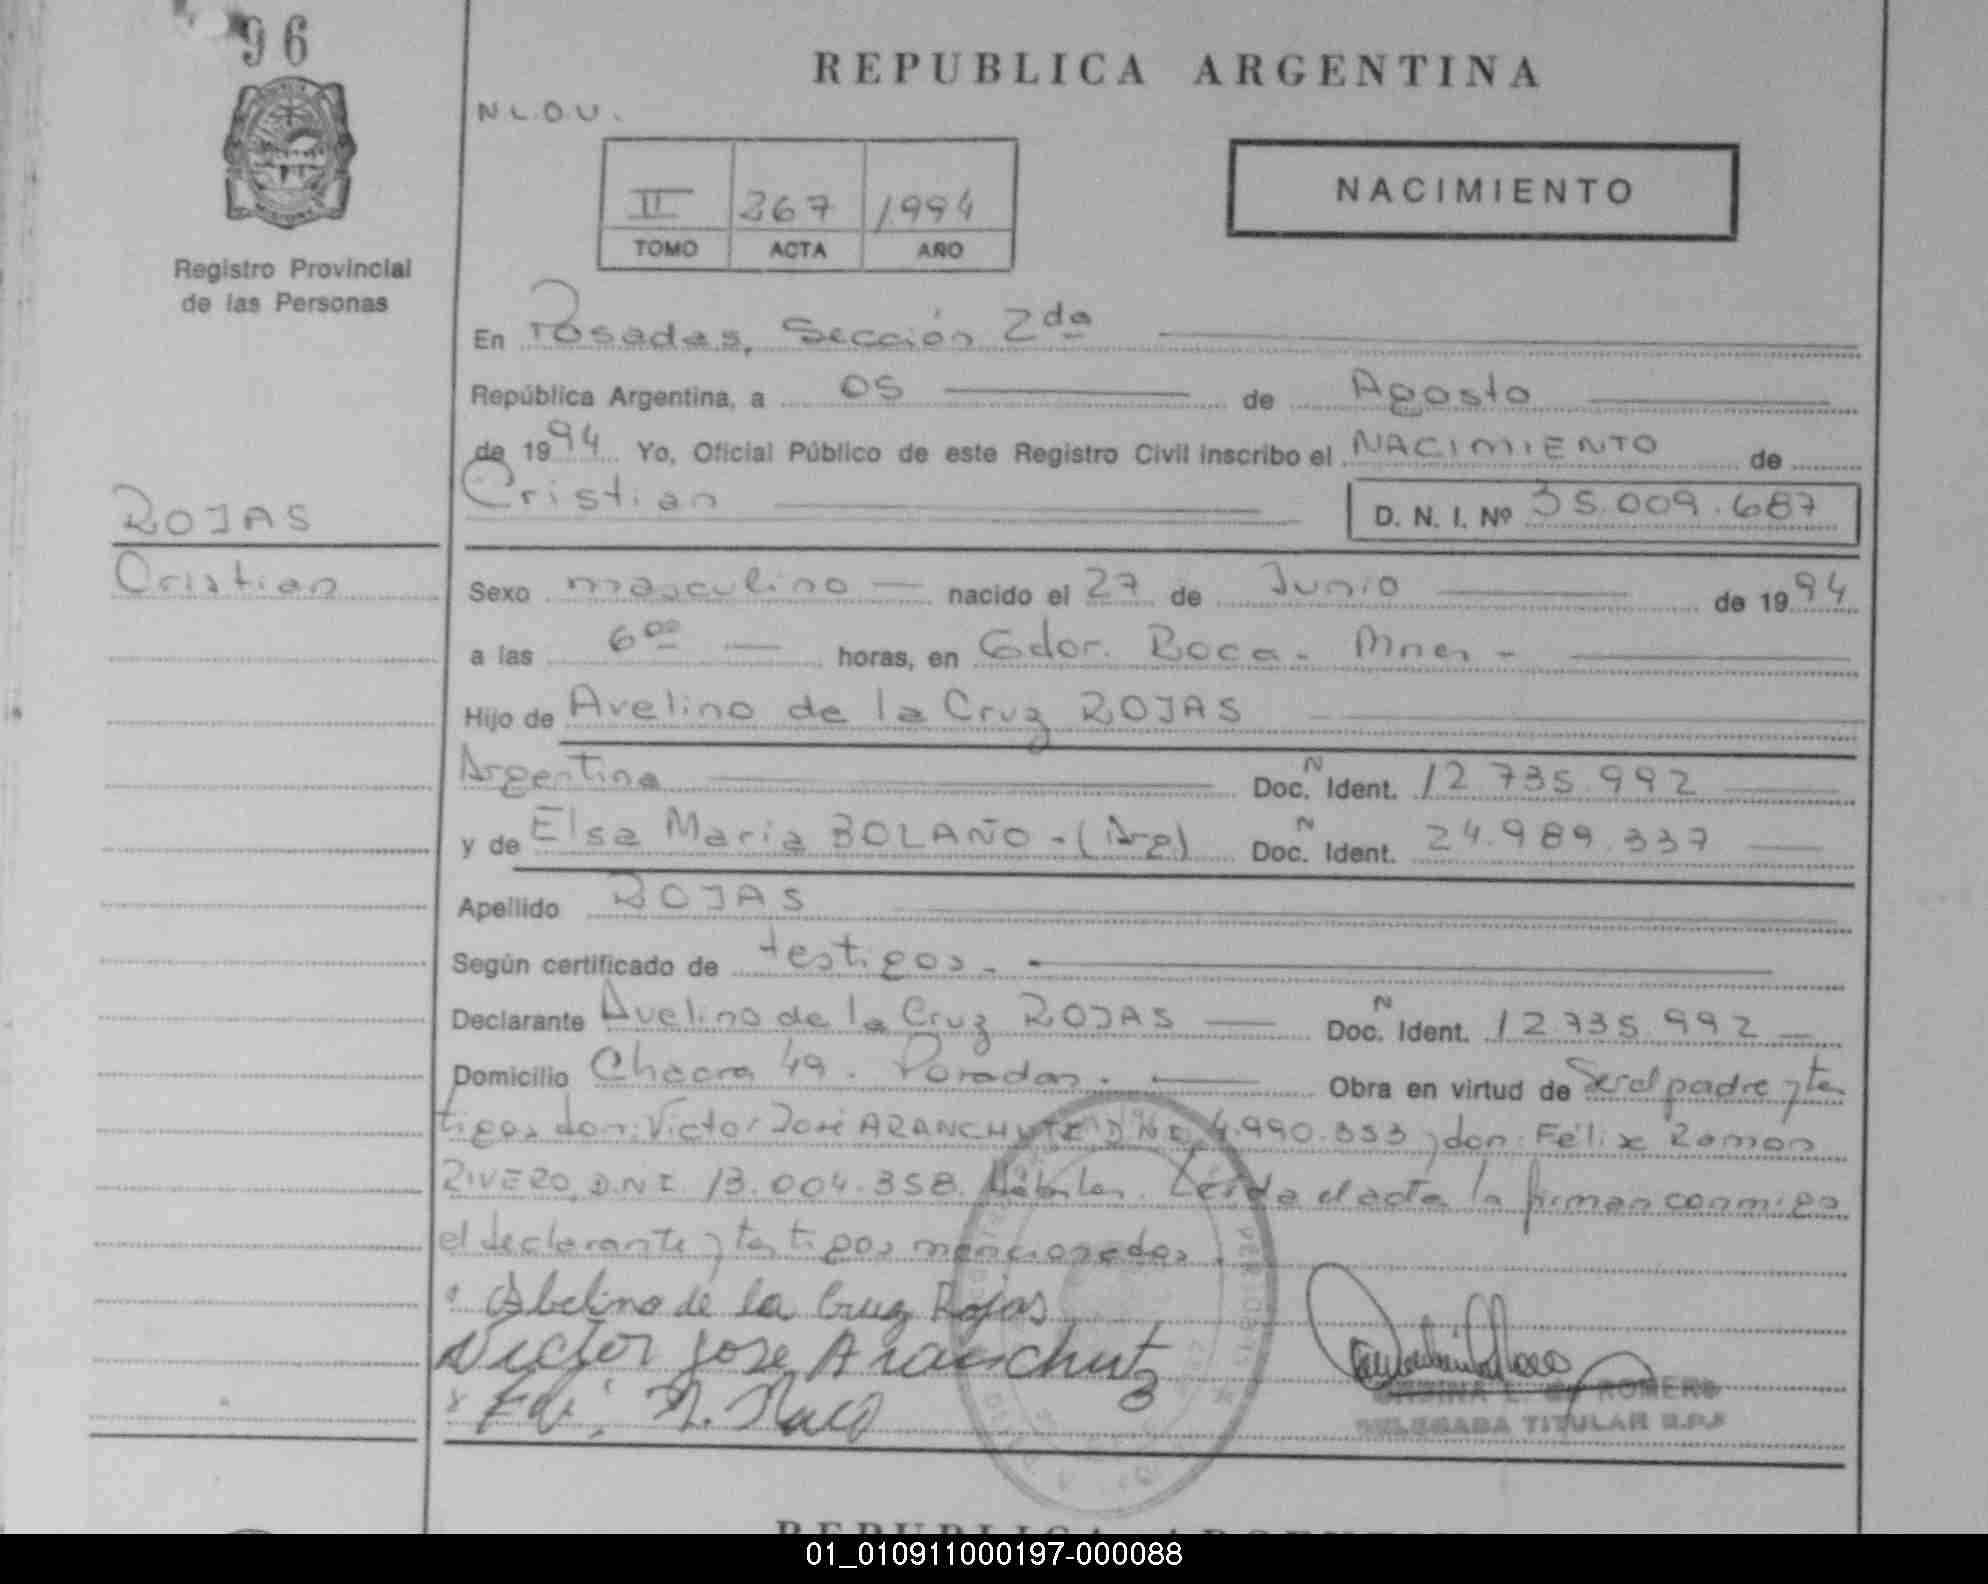 96
REPUBLICA ARGENTINA
N L.O.U.
II 267 1994
TOMO ACTA AÑO
NACIMIENTO
Registro Provincial
de las Personas
En Posadas, Sección 2da
República Argentina, a 05 de Agosto
de 1994 Yo, Oficial Público de este Registro Civil inscribo el NACIMIENTO de
Cristian D. N. I. Nº 35.009.687
ROJAS
Cristian
Sexo masculino nacido el 27 de Junio de 1994
a las 6 00 horas, en Gdor. Roca - Mnes -
Hijo de Avelino de la Cruz ROJAS
Argentina Doc. N Ident. 12.735.992
y de Elsa Maria BOLAÑO - (Arg) Doc. N Ident. 24.989.337
Apellido ROJAS
Según certificado de testigos -
Declarante Avelino de la Cruz ROJAS Doc. N Ident. 12.735.992
Domicilio Chacra 49. Posadas. Obra en virtud de Ser el padre y tes
tigos don: Victor José ARANCHUTZ D.N.I. 4.990.353 y don: Félix Ramon
RIVERO, D.N.I. 13.004.358. Hábiles. Leída el acta la firman conmigo
el declarante y testigos mencionados.
Abelino de la Cruz Rojas
Victor Jose Aranschutz
ROMERO
DELEGADA TITULAR R.P.P
REPUBLICA ARGENTINA
01_010911000197-000088